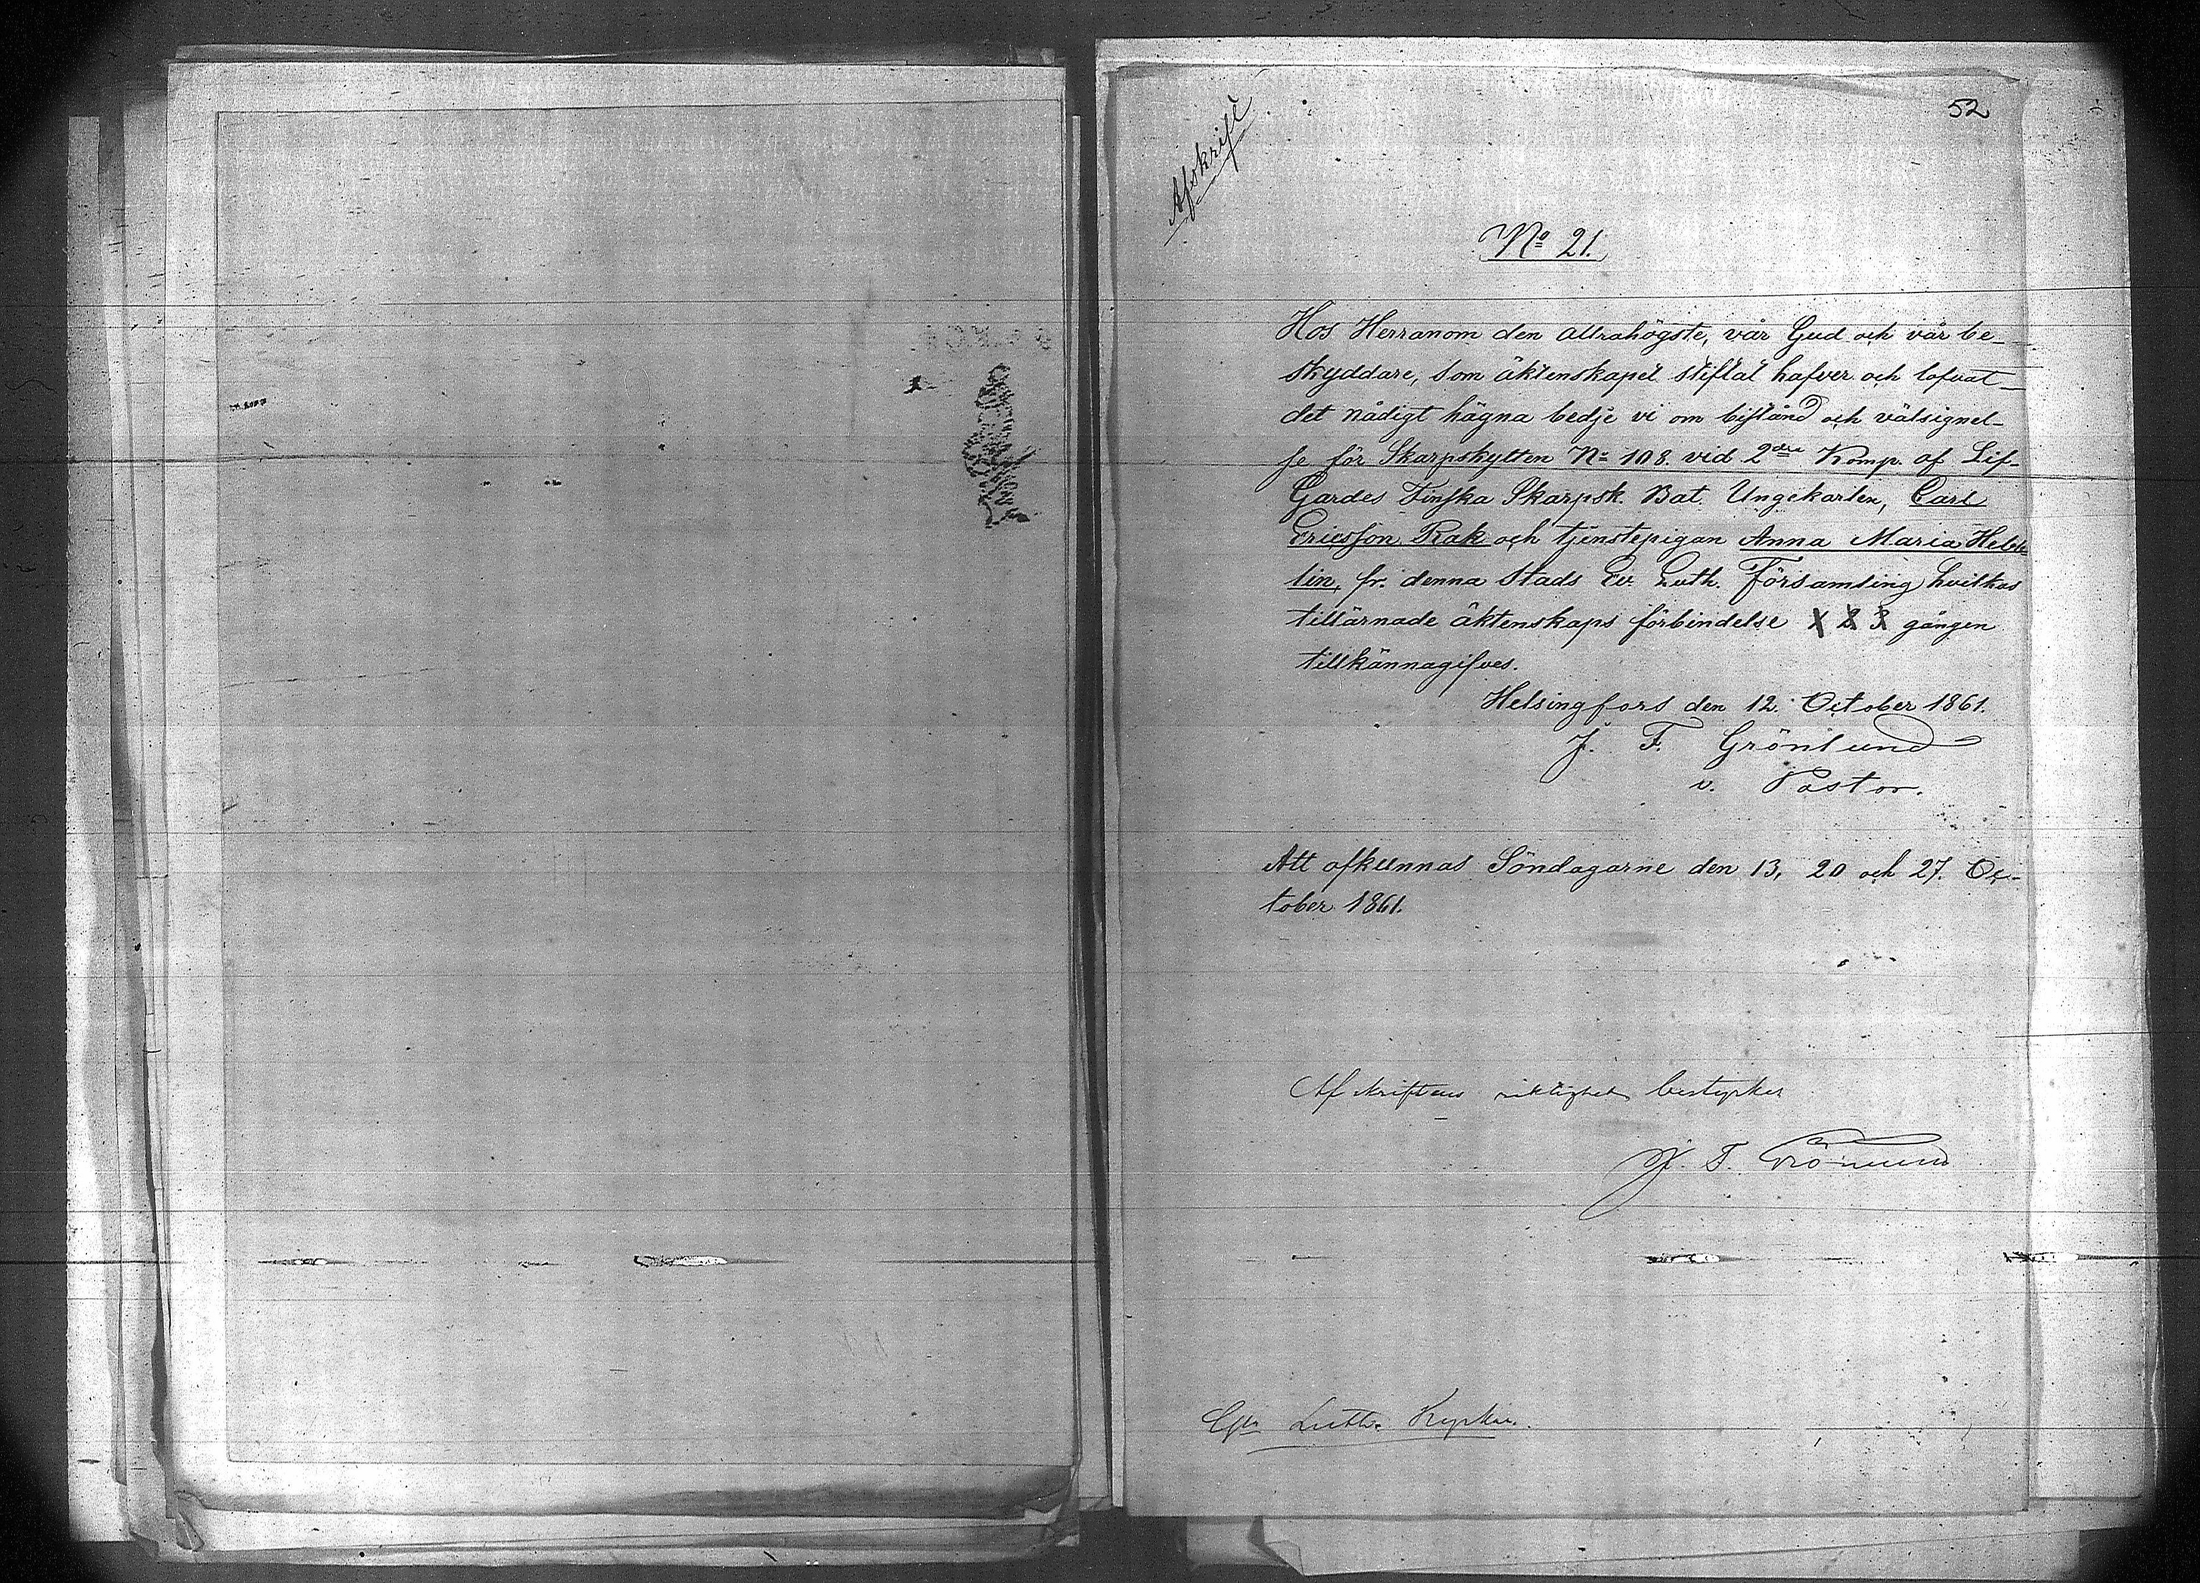 52
Afskrift
No 21.
Hos Herranom den allrahögste, vår Gud och vår be-
skyddare, som äktenskapet stiftat hafver och lofvat
det nådigt hägna bedje vi om bistånd och välsignel-
se för Skarpskytten No 108. vid 2dra Komp. af Lif-
Gardes Finska Skarpsk. Bat. Ungekarlen, Carl
Ericsson Rak och tjenstepigan Anna Maria
lin, fr. denna Stads Ev. Luth. Församling hvilkas
tillärnade äktenskaps förbindelse 1 2 3 gången
tillkännagifves.
Helsingfors den 12. October 1861.
J. F. Grönlund
v. Pastor.
Att afkunnas Söndagarne den 13, 20 och 27. Oc-
tober 1861.
Afskriftens riktighet bestyrker
J. F. Grönlund
Luth. Kyrkan.